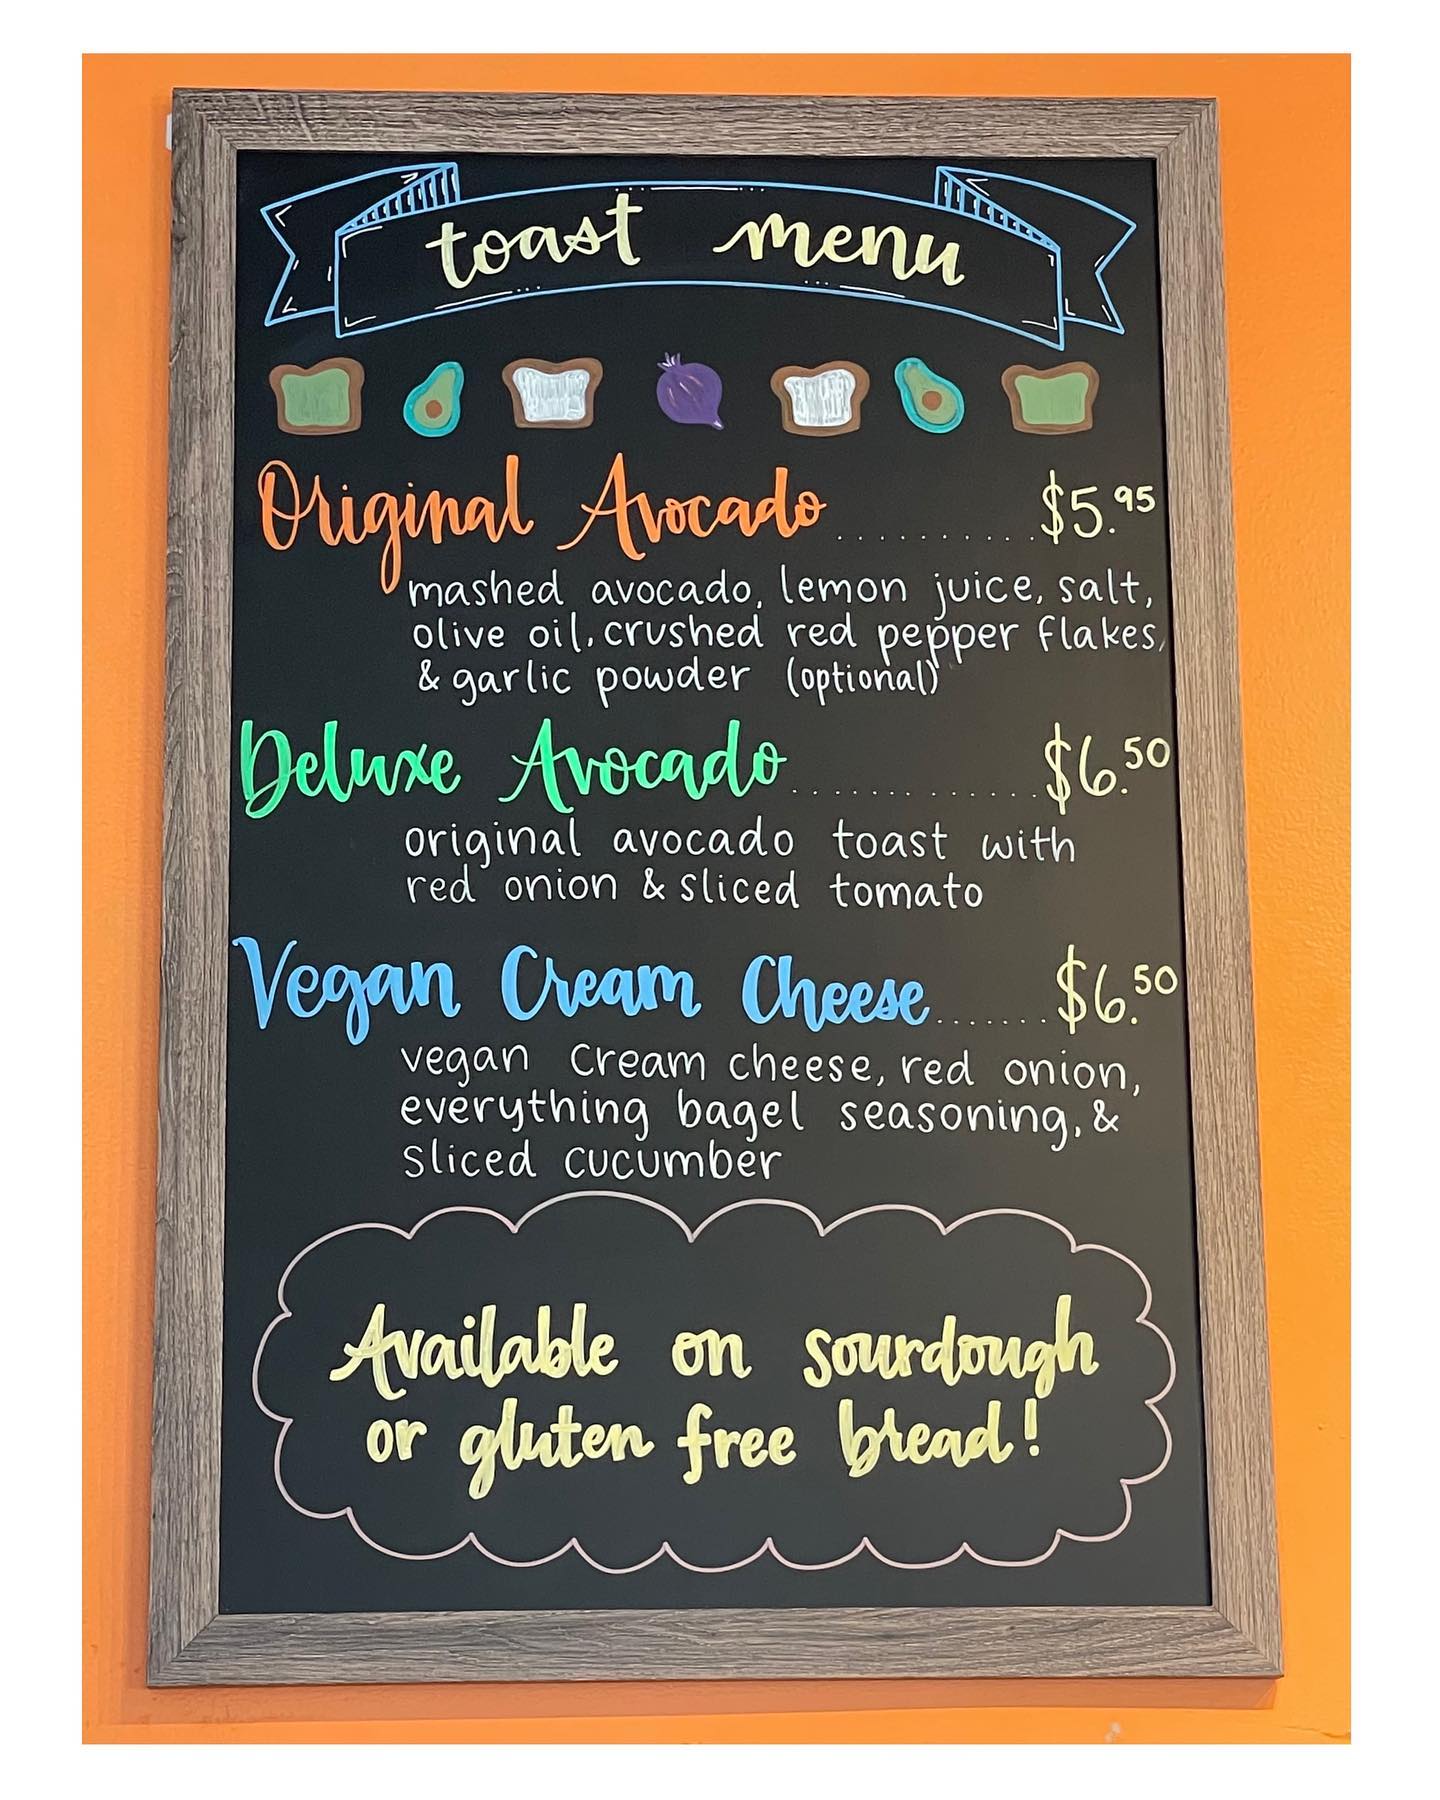 toast menu
Original Avocado..........$5.95
mashed avocado, lemon juice, salt,
olive oil, crushed red pepper flakes,
& garlic powder (optional)
Deluxe Avocado.............$6.50
original avocado toast with
red onion & sliced tomato
Vegan Cream Cheese.......$6.50
vegan cream cheese, red onion,
everything bagel seasoning, &
sliced cucumber
Available on sourdough
or gluten free bread!